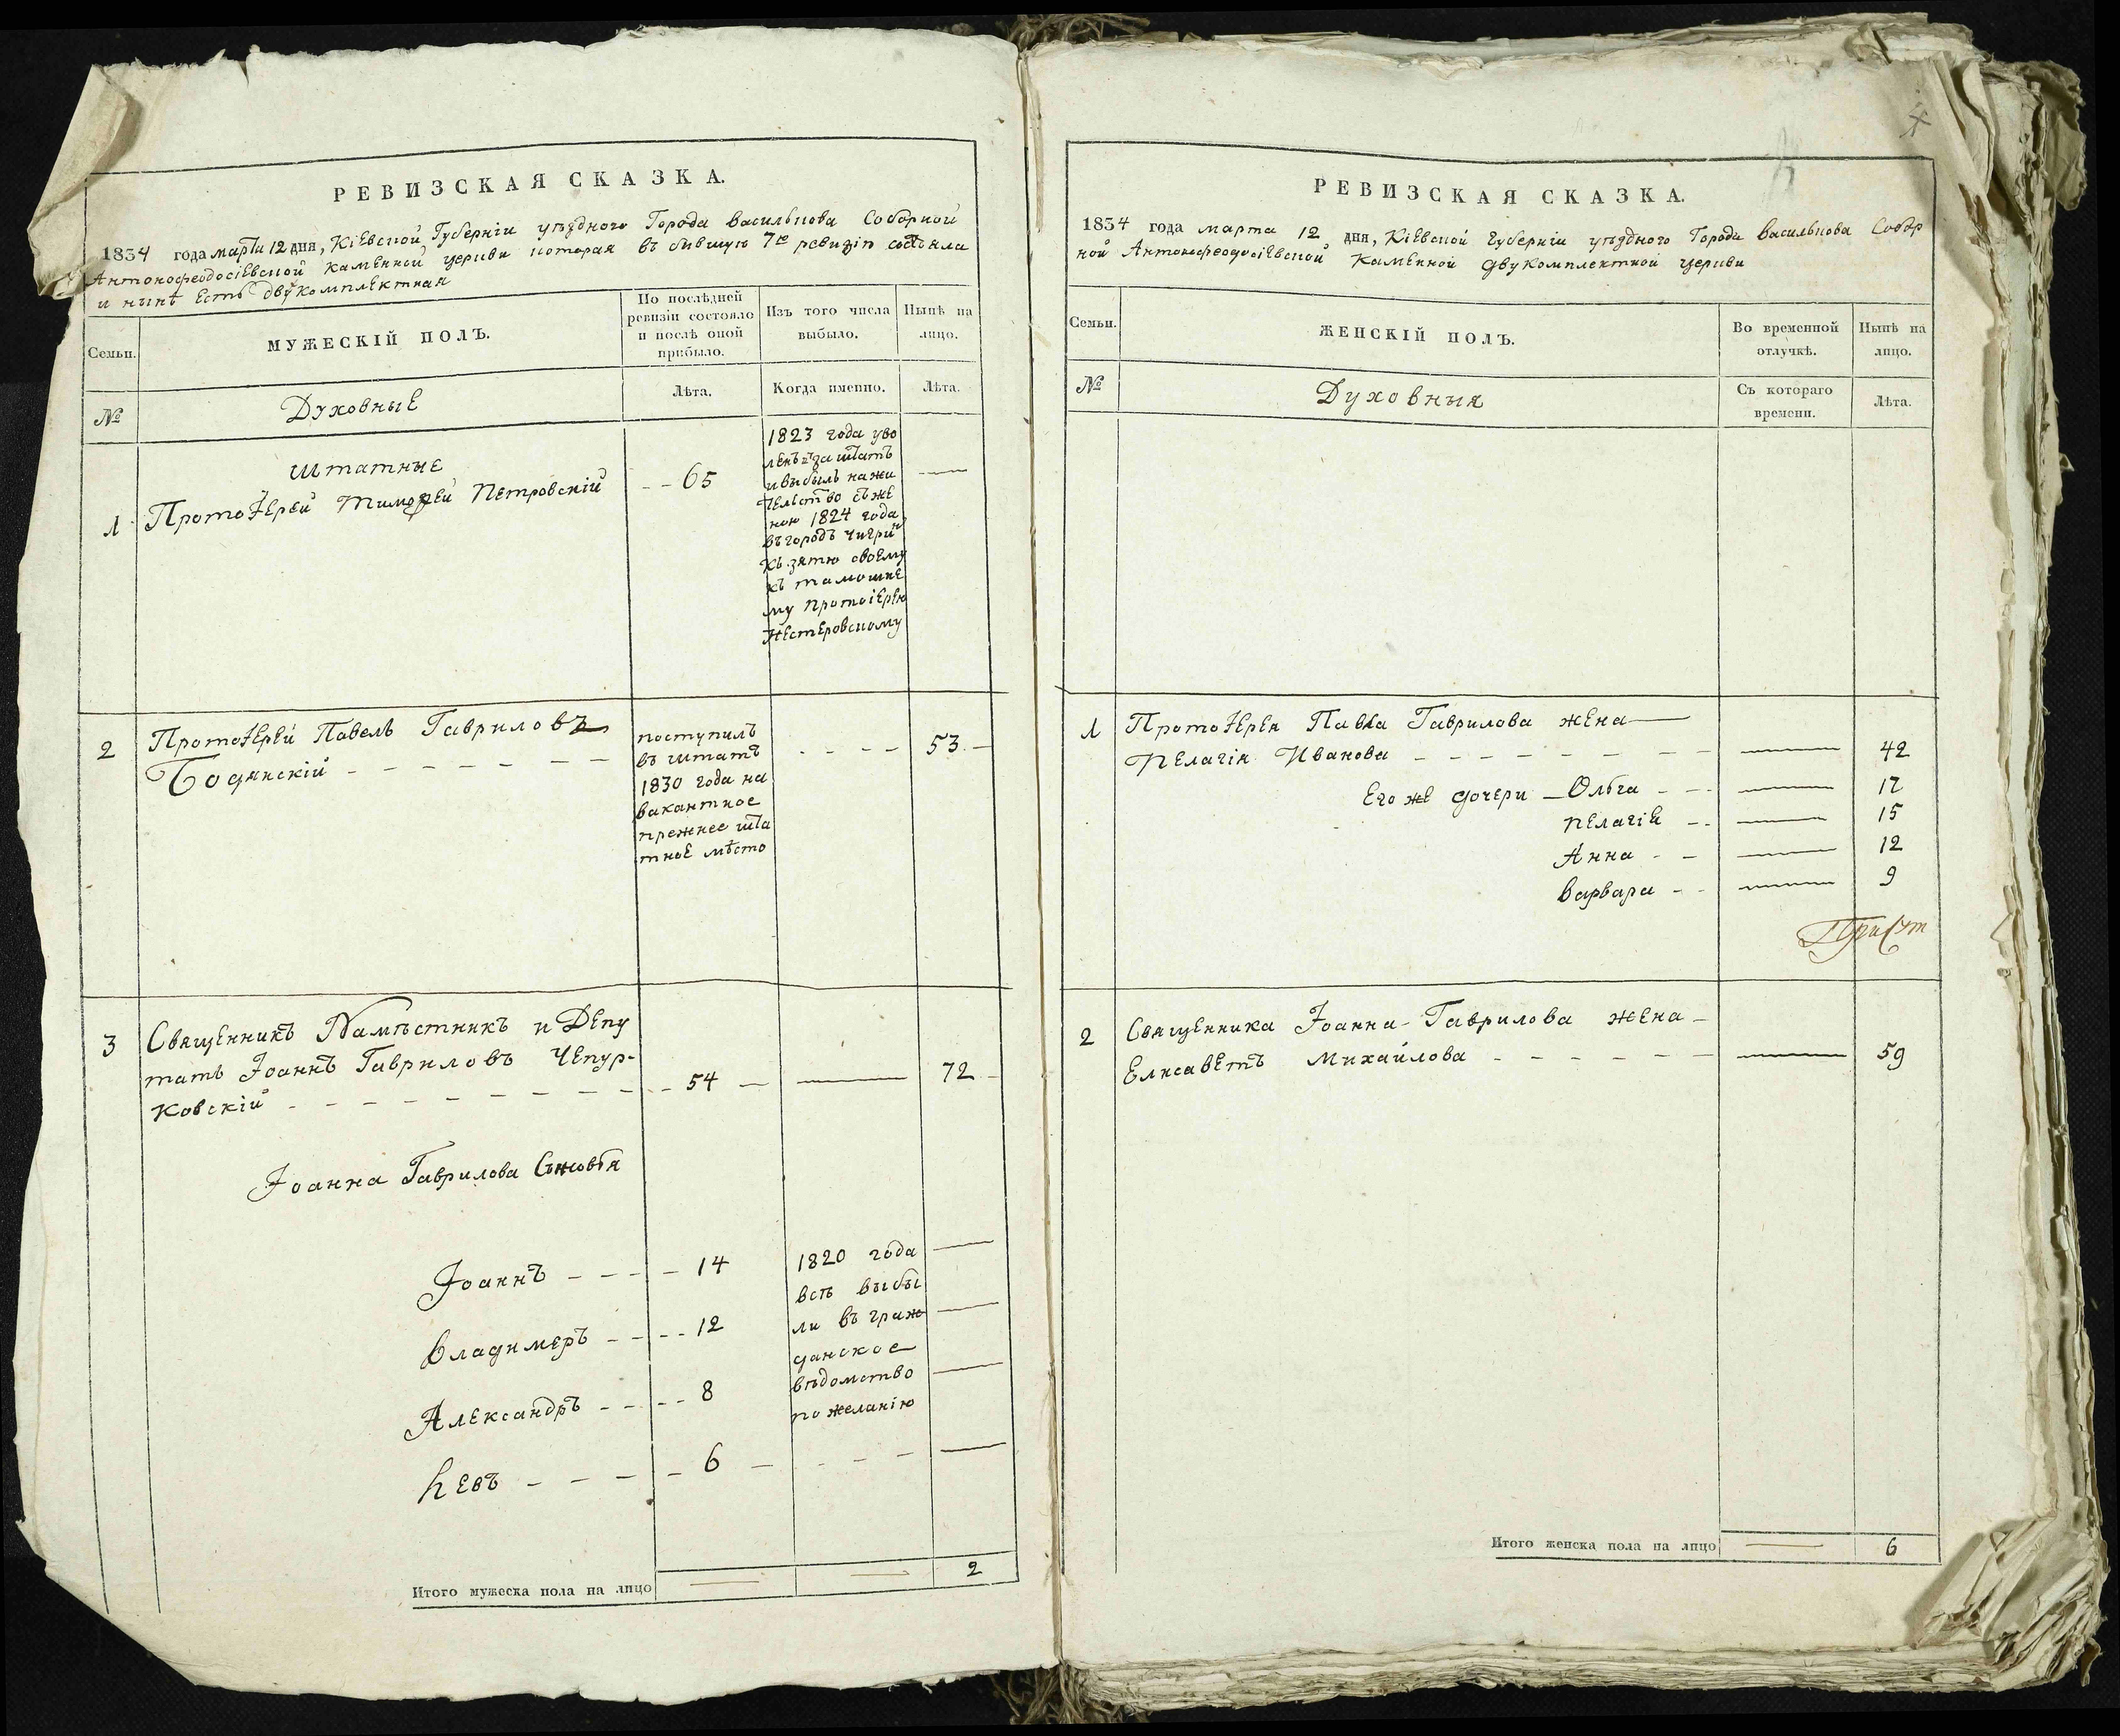 РЕВИЗСКАЯ СКАЗКА.
1834 года марта 12 дня, Кіевской Губерніи уѣздного Города Василькова Соборной
Антонофеодосіевской каменной церкви которая въ бывшую 7ю ревизію состояла
и нынѣ есть двукомплектная
Семьи.
МУЖЕСКІЙ ПОЛЪ.
По послѣдней
ревизіи состояло
и послѣ оной
прибыло.
Изъ того числа
выбыло.
Нынѣ на
лицо.
№
Духовные
Лѣта.
Когда именно.
Лѣта.
Штатные
1
Протоіерей Тимоѳей Петровскій
65
1823 года уво
ленъ за штатъ
и выбылъ на жи
тельство съ же
ною 1824 года
въ городъ Чигрин
къ зятю своему
къ тамошне
му протоіерею
Нестеровскому
2
Протоіерей Павелъ Гавриловъ
Бодянскій
поступилъ
въ штатъ
1830 года на
вакантное
прежнее шта
тное мѣсто
53
3
Священникъ Намѣстникъ и Депу
татъ Іоаннъ Гавриловъ Чепур-
ковскій
54
72
Іоанна Гаврилова Сыновья
Іоаннъ
14
Владимеръ
12
Александръ
8
Левъ
6
1820 года
всѣ выбы
ли въ граж
данское
вѣдомство
по желанію
Итого мужеска пола на лицо
2
РЕВИЗСКАЯ СКАЗКА.
1834 года марта 12 дня, Кіевской Губерніи уѣздного Города Василькова Собор
ной Антонофеодосіевской Каменной двукомплектной церкви
Семьи.
ЖЕНСКІЙ ПОЛЪ.
Во временной
отлучкѣ.
Нынѣ на
лицо.
№
Духовныя
Съ котораго
времени.
Лѣта.
1
Протоіерея Павла Гаврилова жена
Пелагія Иванова
42
Его же дочери Ольга
17
Пелагія
15
Анна
12
Варвара
9
2
Священника Іоанна Гаврилова жена
Елисаветъ Михайлова
59
Итого женска пола на лицо
6